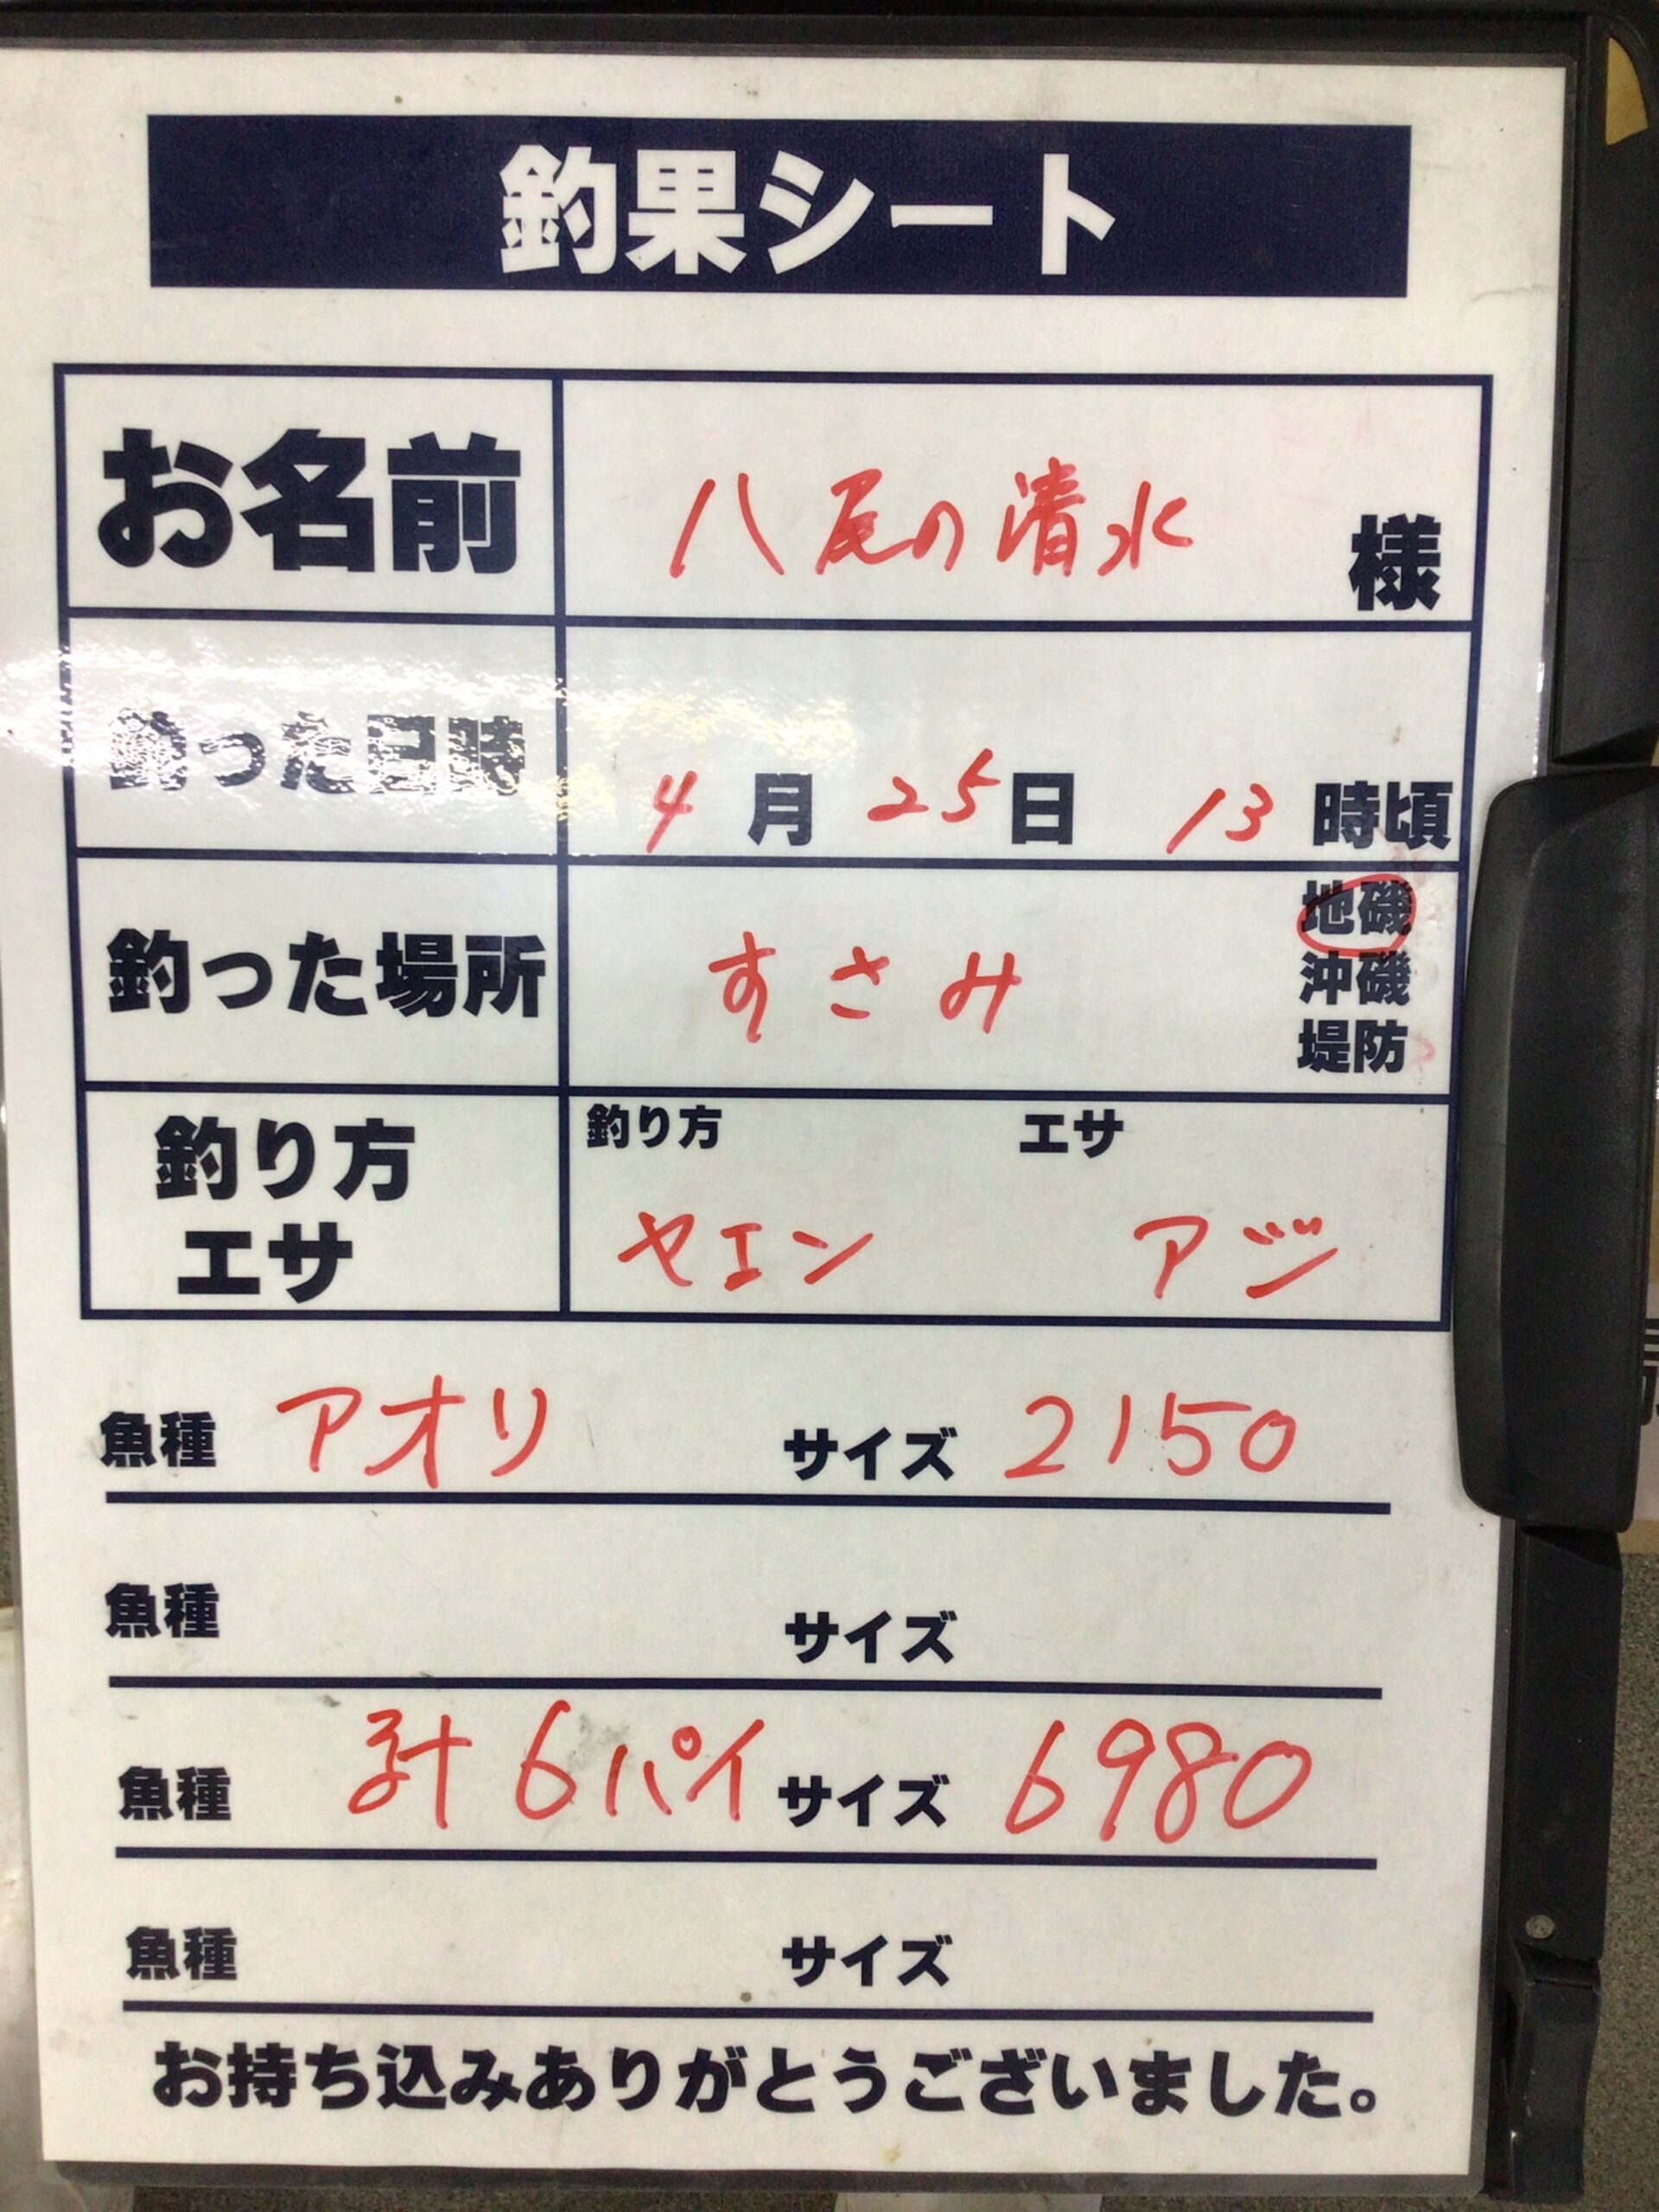 釣果シート
お名前 八尾の清水 様
釣った日時 4月25日 13時頃
釣った場所 すさみ 地磯
沖磯
堤防
釣り方 エサ
釣り方
エサ
ヤエン アジ
魚種 アオリ サイズ 2150
魚種 サイズ
魚種 計6パイ サイズ 6980
魚種 サイズ
お持ち込みありがとうございました。